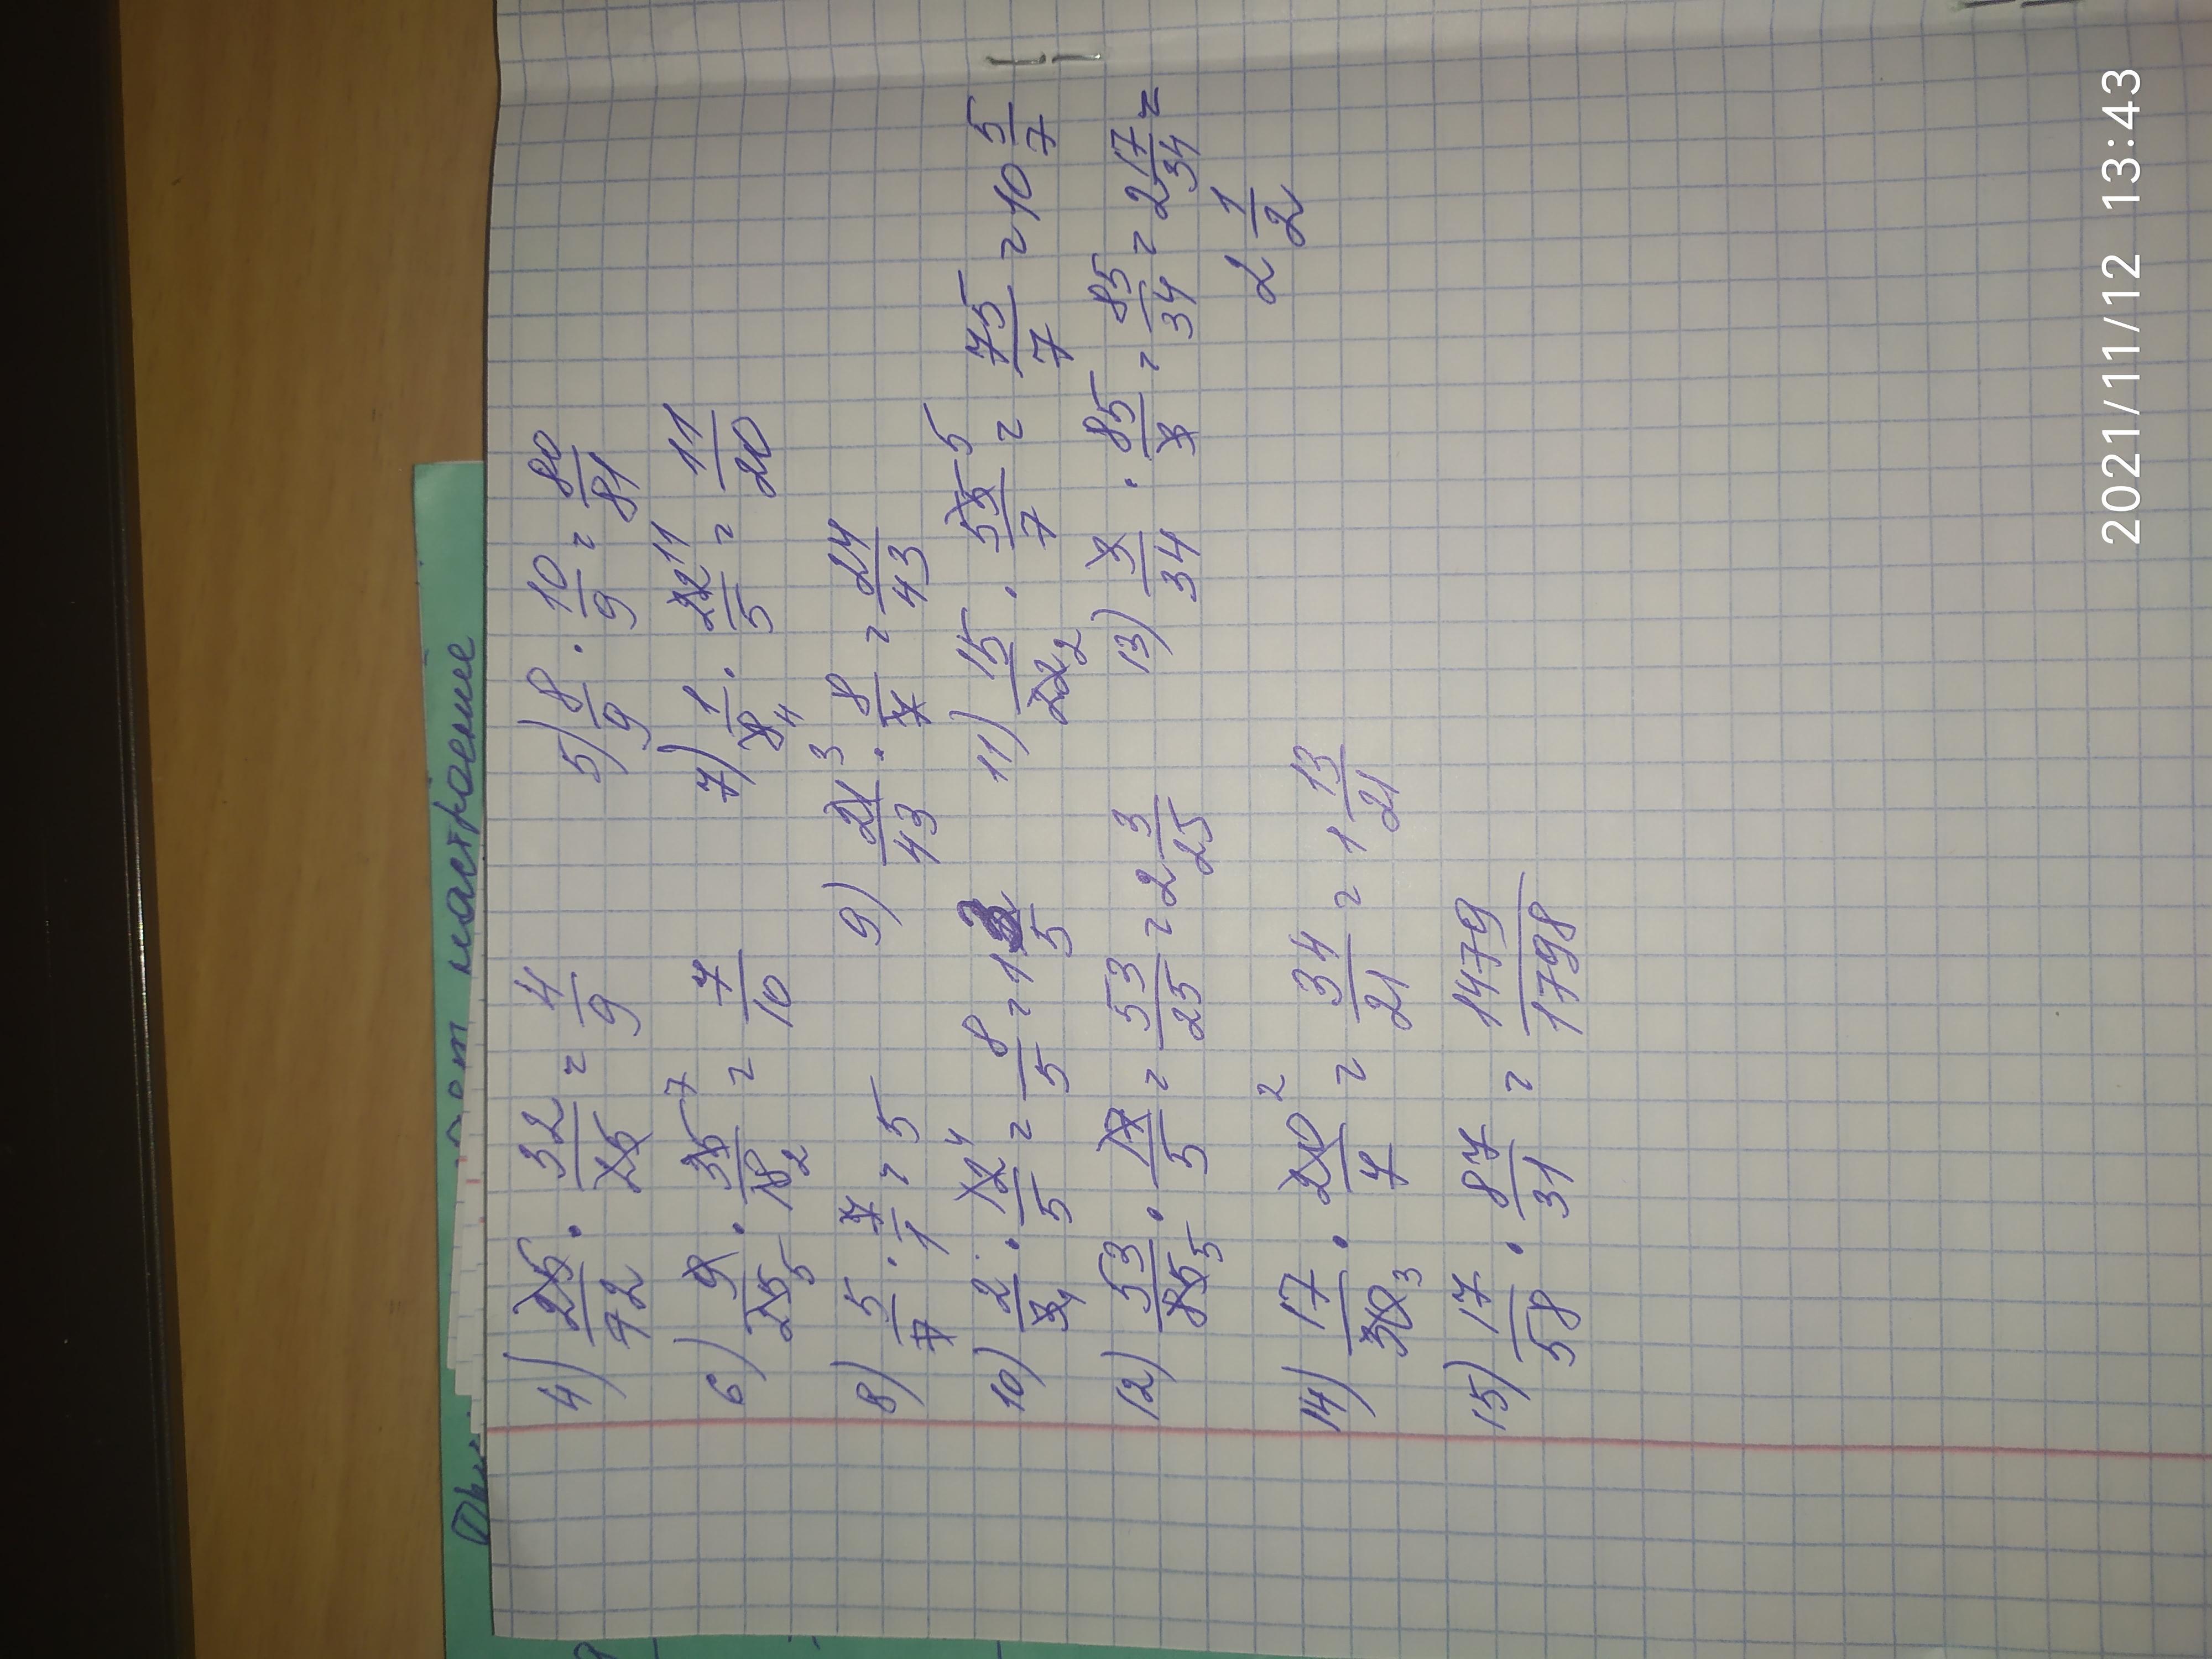 настроение
4) 25/72 · 32/25 = 4/9 5) 8/9 · 10/9 = 80/81
6) 9/25 5 · 35 7/18 2 = 7/10 7) 1/8 4 · 22 11/5 = 11/20
8) 5/7 · 7/1 = 5 9) 21 3/43 · 8/7 = 24/43
10) 2/3 1 · 12 4/5 = 8/5 = 1 3/5 11) 15/22 2 · 55 5/7 = 75/7 = 10 5/7
12) 53/85 5 · 17/5 = 53/25 = 2 3/25 13) 3/34 · 85/3 = 85/34 = 2 17/34 =
2 1/2
14) 17/30 3 · 20 2/7 = 34/21 = 1 13/21
15) 17/58 · 87/31 = 1479/1798
2021/11/12 13:43